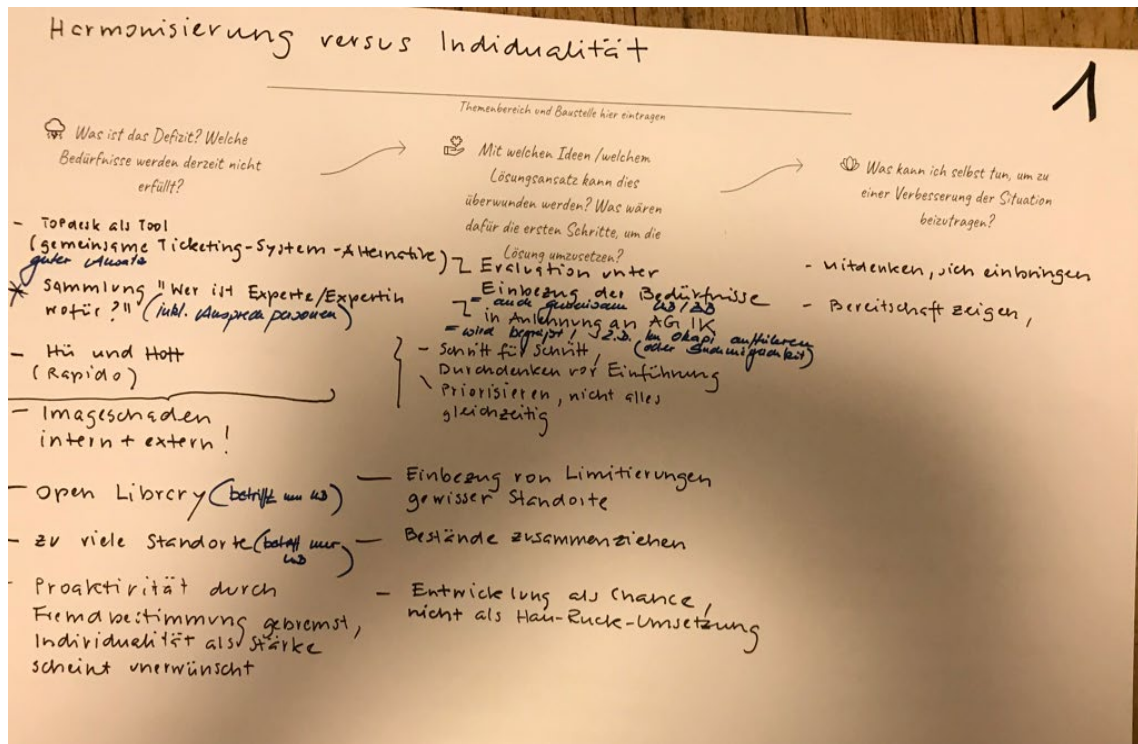 Harmonisierung versus Indidualität
1
Themenbereich und Baustelle hier eintragen
Was ist das Defizit? Welche
Bedürfnisse werden derzeit nicht
erfüllt?
- TOPdesk als Tool
(gemeinsame Ticketing-System-Alternative)
guter Ansatz
* Sammlung "Wer ist Experte/Expertin
wofür?" (inkl. Ansprechpersonen)
- Hü und Hott
(Rapido)
- Imageschaden
intern + extern!
- open Library (betrifft nur UB)
- zu viele Standorte (betrifft nur
UB)
- Proaktivität durch
Fremdbestimmung gebremst,
Individualität als Stärke
scheint unerwünscht
Mit welchen Ideen /welchem
Lösungsansatz kann dies
überwunden werden? Was wären
dafür die ersten Schritte, um die
Lösung umzusetzen?
Evaluation unter
Einbezug der Bedürfnisse
= auch gemeinsam UB/
in Anlehnung an AG IK
= wird begrüsst, z.B. im Okapi aufführen
(oder
- Schritt für Schritt,
Durchdenken vor Einführung
Priorisieren, nicht alles
gleichzeitig
- Einbezug von Limitierungen
gewisser Standorte
- Bestände zusammenziehen
- Entwickelung als Chance,
nicht als Hau-Ruck-Umsetzung
Was kann ich selbst tun, um zu
einer Verbesserung der Situation
beizutragen?
- Mitdenken, sich einbringen
- Bereitschaft zeigen,